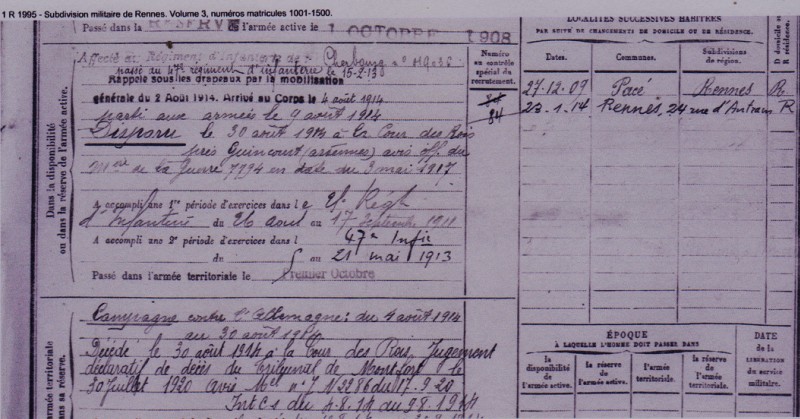 1 R 1995 - Subdivision militaire de Rennes. Volume 3, numéros matricules 1001-1500.
Passé dans la RÉSERVE de l'armée active le 1 OCTOBRE 1908
Affecté au Régiment d'infanterie de Cherbourg
passé au 47e régiment d'infanterie le 15-2-13
Rappelé sous les drapeaux par la mobilisation
générale du 2 Août 1914. Arrivé au Corps le 4 août 1914
parti aux armées le 9 août 1914
Disparu le 30 août 1914 à la Cour des Rois
près Guincourt (ardennes) avis off. du
de la Guerre 7794 en date du 3 mai 1917
A accompli une 1re période d'exercices dans le Régt
d'Infanterie du 26 aout au 17 Septembre 1911
A accompli une 2e période d'exercices dans l 47e Infie
du au 21 mai 1913
Passé dans l'armée territoriale le Premier Octobre
Campagne contre l'Allemagne: du 4 août 1914
au 30 août 1914
Décédé le 30 août 1914 à la Cour des Rois, Jugement
déclaratif de décès du tribunal de Montfort le
30 juillet 1920 avis Mel n° du 17.9.20
Int CS du 4.8.14 au 9.8.1914
Dans la disponibilité
ou dans la réserve de l'armée active.
armée territoriale
sa réserve.
Numéro
au contrôle
spécial du
recrutement.
84
LOCALITÉS SUCCESSIVES HABITÉES
PAR SUITE DE CHANGEMENTS DE DOMICILE OU DE RÉSIDENCE.
Dates. Communes. Subdivisions
de région.
D domicile
R résidence
27.12.09 Pacé Rennes R
23.1.14 Rennes, 24 rue d'Antrain R
ÉPOQUE
À LAQUELLE L'HOMME DOIT PASSER DANS
la
disponibilité
de l'armée active.
la réserve
de
l'armée active.
l'armée
territoriale.
la réserve
de l'armée
territoriale.
DATE
de la
LIBÉRATION
du service
militaire.